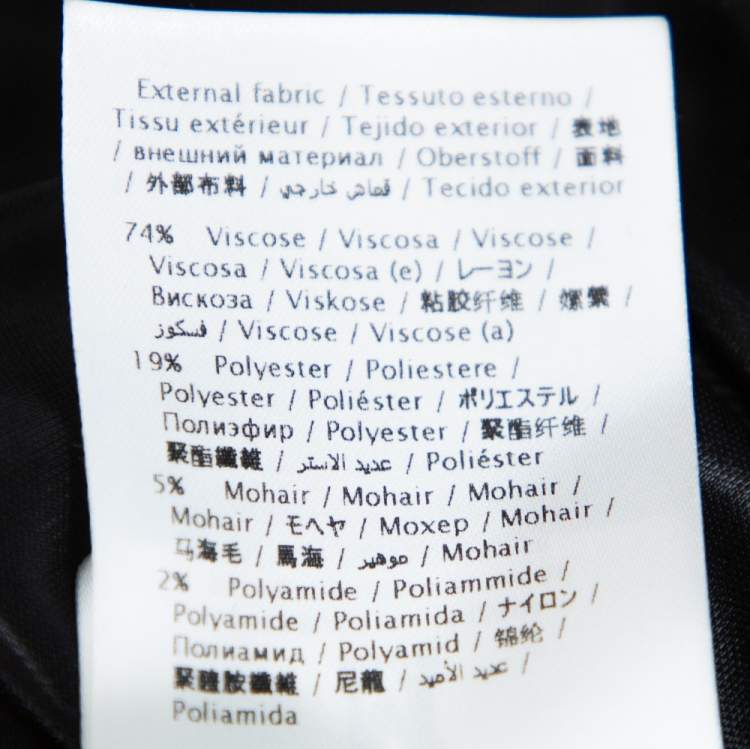 External fabric / Tessuto esterno /
Tissu extérieur / Tejido exterior / 表地
/ внешний материал / Oberstoff / 面料
/ 外部布料 / قماش خارجي / Tecido exterior
74% Viscose / Viscosa / Viscose /
Viscosa / Viscosa (e) / レーヨン /
Вискоза / Viskose / 粘胶纤维 / 嫘縈 /
فسكوز / Viscose / Viscose (a)
19% Polyester / Poliestere /
Polyester / Poliéster / ポリエステル /
Полиэфир / Polyester / 聚酯纤维 /
聚酯纖維 / عديد الاستر / Poliéster
5% Mohair / Mohair / Mohair /
Mohair / モヘヤ / Мохер / Mohair /
马海毛 / 馬海 / موهير / Mohair
2% Polyamide / Poliammide /
Polyamide / Poliamida / ナイロン /
Полиамид / Polyamid / 锦纶 /
聚醯胺纖維 / 尼龍 / عديد الأميد /
Poliamida